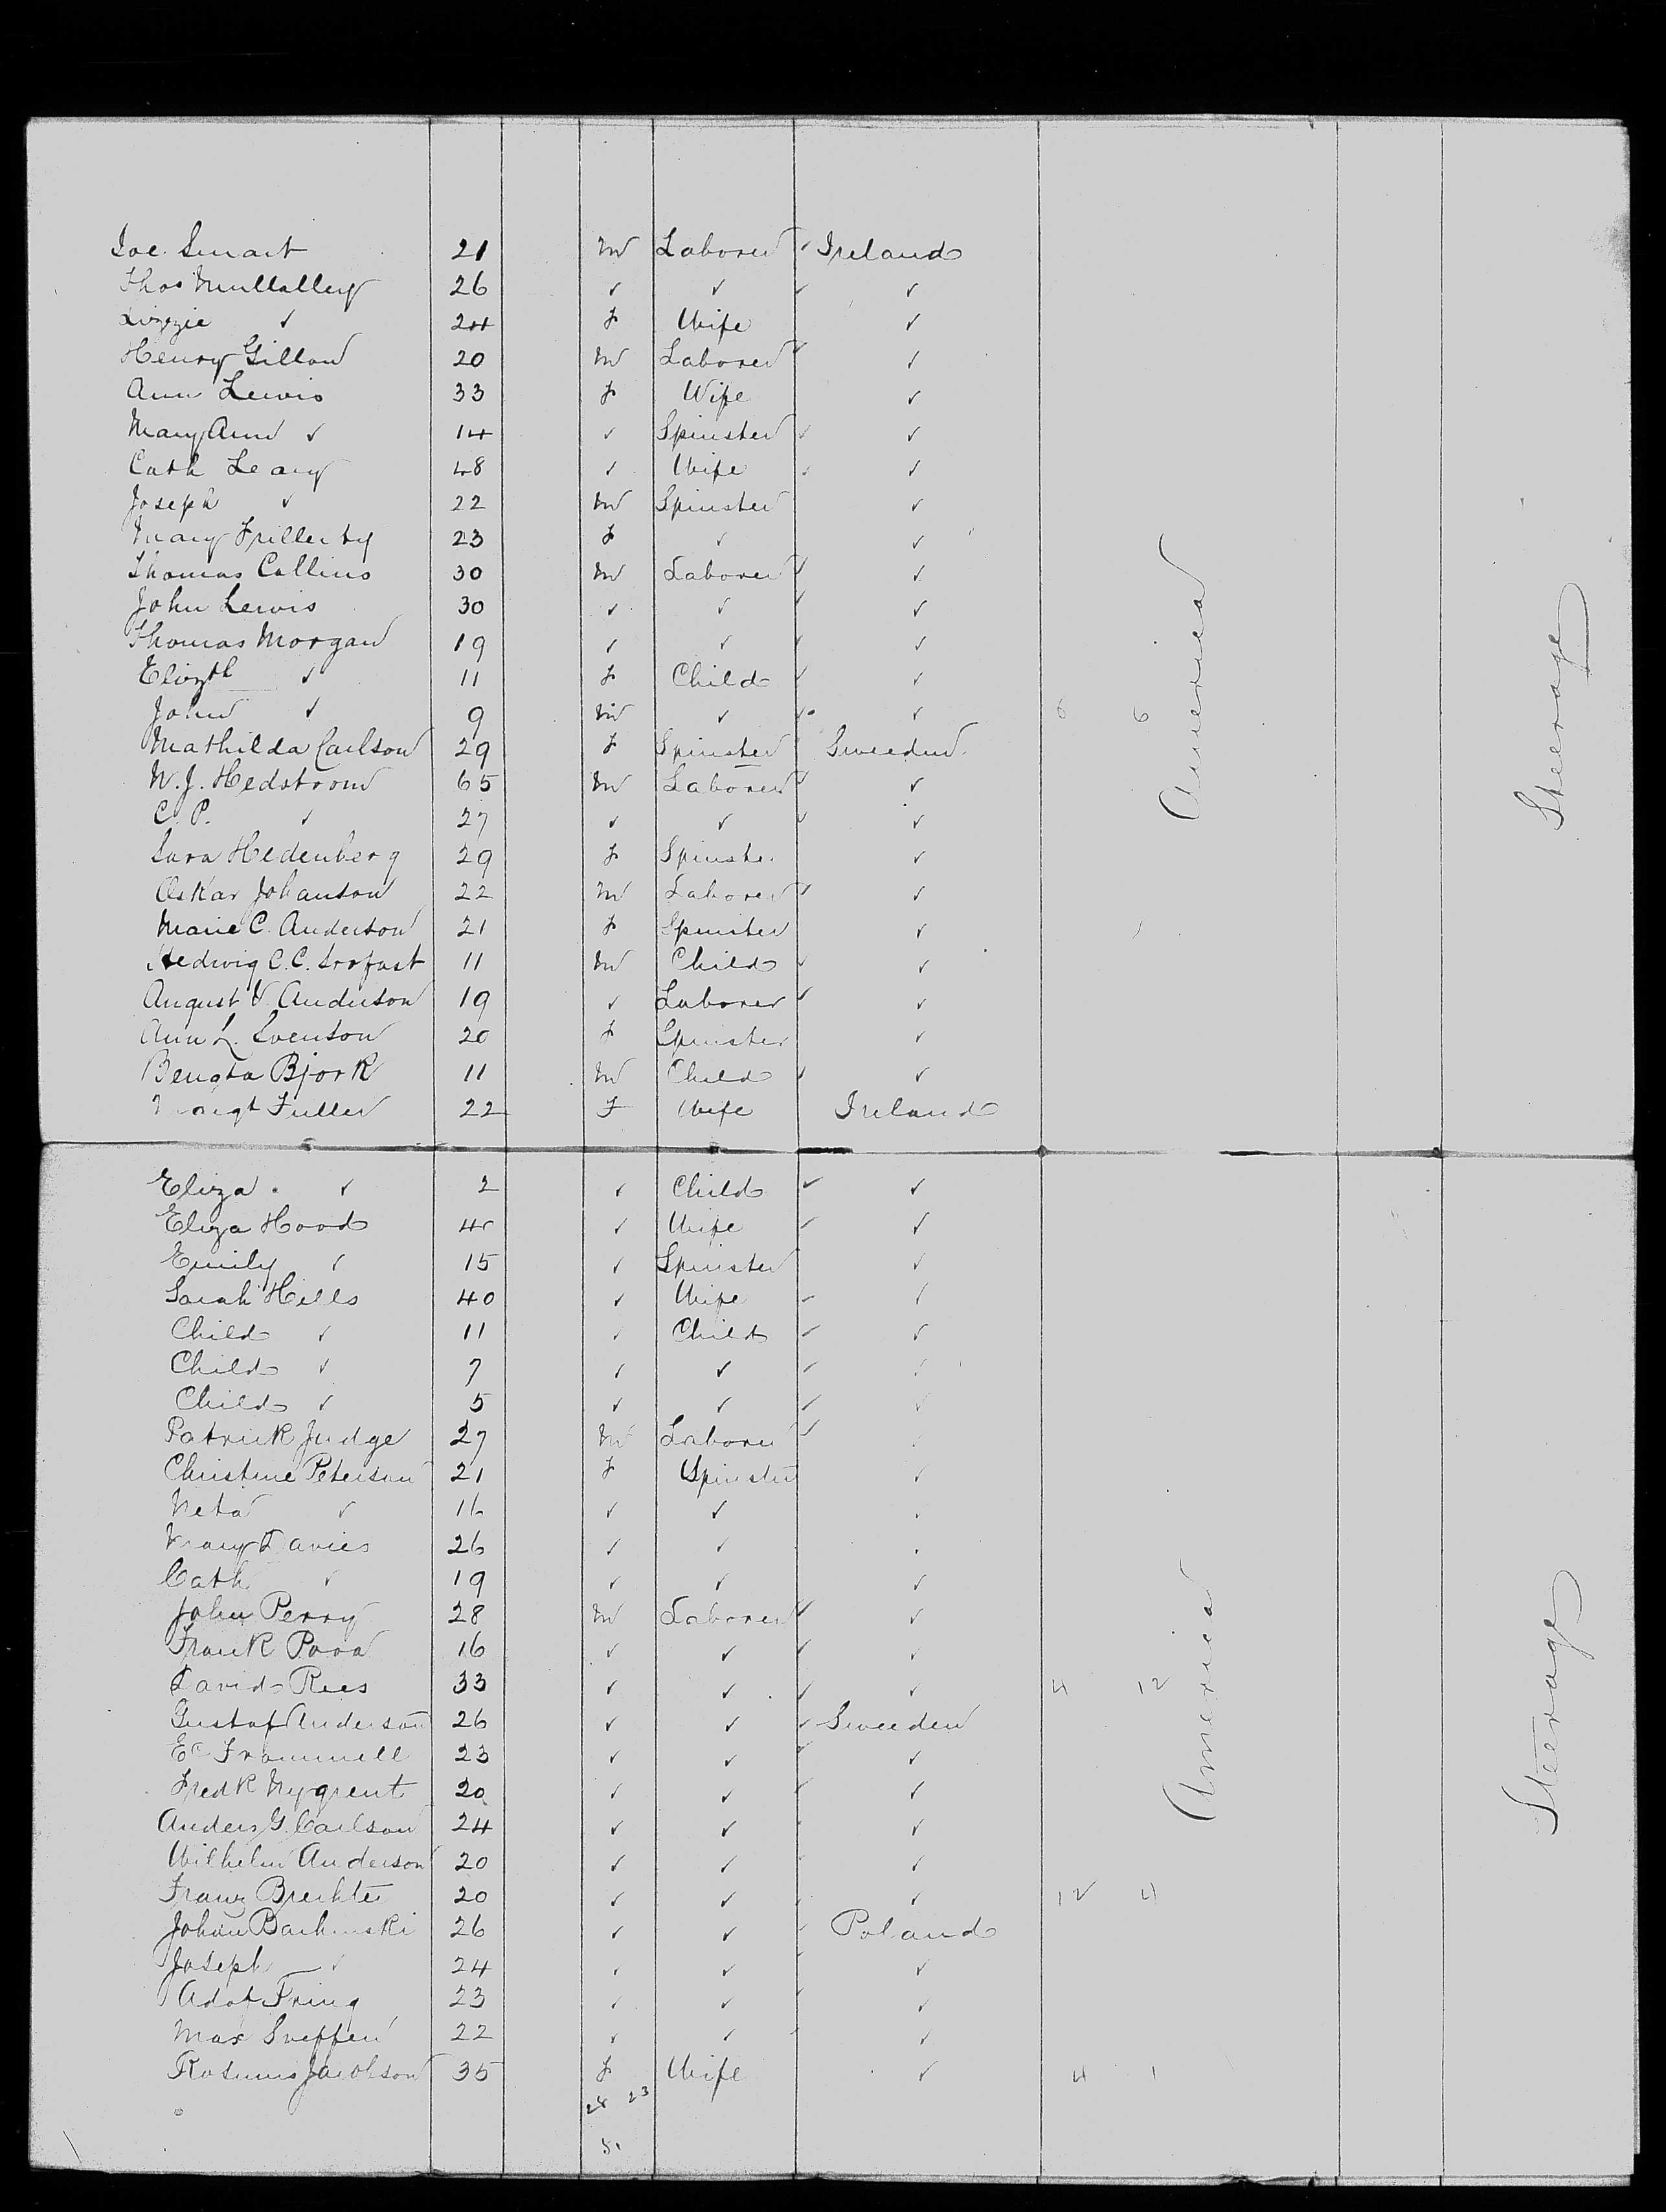 Joe. Smart 21 M Laborer ✓ Ireland
Thos Mullallery 26 ✓ ✓ ✓ ✓
Lizzie ✓ 24 F Wife ✓
Henry Gillon 20 M Laborer ✓ ✓
Ann Lewis 33 F Wife ✓
Mary Ann ✓ 14 ✓ Spinster ✓ ✓
Cath Leary 48 ✓ Wife ✓ ✓
Joseph ✓ 22 M Spinster ✓
Mary 23 F ✓ ✓
Thomas Collins 30 M Laborer ✓ ✓
John Lewis 30 ✓ ✓ ✓ ✓
Thomas Morgan 19 ✓ ✓ ✓ ✓
Elizth ✓ 11 F Child ✓ ✓
John ✓ 9 M ✓ ✓ ✓ 6 6
Mathilda Carlson 29 F Spinster Sweeden
W. J. Hedstrom 65 M Laborer ✓ ✓
C. P. ✓ 27 ✓ ✓ ✓ ✓
Sara Hedenberg 29 F Spinster ✓
Oskar Johanson 22 M Laborer ✓ ✓
Marie C. Anderson 21 F Spinster ✓
Hedwig C. C. 11 M Child ✓ ✓
August V. Anderson 19 ✓ Laborer ✓ ✓
Ann L. Svenson 20 F Spinster ✓
Bengta Bjork 11 M Child ✓ ✓
Fuller 22 F Wife Ireland
America
Steerage
Eliza ✓ 2 ✓ Child ✓ ✓
Eliza Hood ✓ Wife ✓ ✓
Emily ✓ 15 ✓ Spinster ✓
Sarah Hills 40 ✓ Wife ✓ ✓
Child ✓ 11 ✓ Child ✓ ✓
Child ✓ 7 ✓ ✓ ✓ ✓
Child ✓ 5 ✓ ✓ ✓ ✓
Patrick Judge 27 M Laborer ✓
Christine Peterson 21 F Spinster ✓
Neta ✓ 16 ✓ ✓
Mary Davies 26 ✓ ✓
Cath ✓ 19 ✓ ✓ ✓
John Perry 28 M Laborer ✓ ✓
Frank 16 ✓ ✓ ✓ ✓
David Rees 33 ✓ ✓ ✓ ✓ 4 12
Gustaf Anderson 26 ✓ ✓ ✓ Sweeden
23 ✓ ✓ ✓ ✓
Fredk Nygrent 20 ✓ ✓ ✓ ✓
Anders G. Carlson 24 ✓ ✓ ✓
Wilhelm Anderson 20 ✓ ✓ ✓
Franz 20 ✓ ✓ ✓ 12 4
Johan 26 ✓ ✓ Poland
Joseph ✓ 24 ✓ ✓ ✓
Adof Fring 23 ✓ ✓ ✓
Max 22 ✓ ✓ ✓
Jacobson 35 F Wife ✓ 4 1
28 23
51
America
Steerage